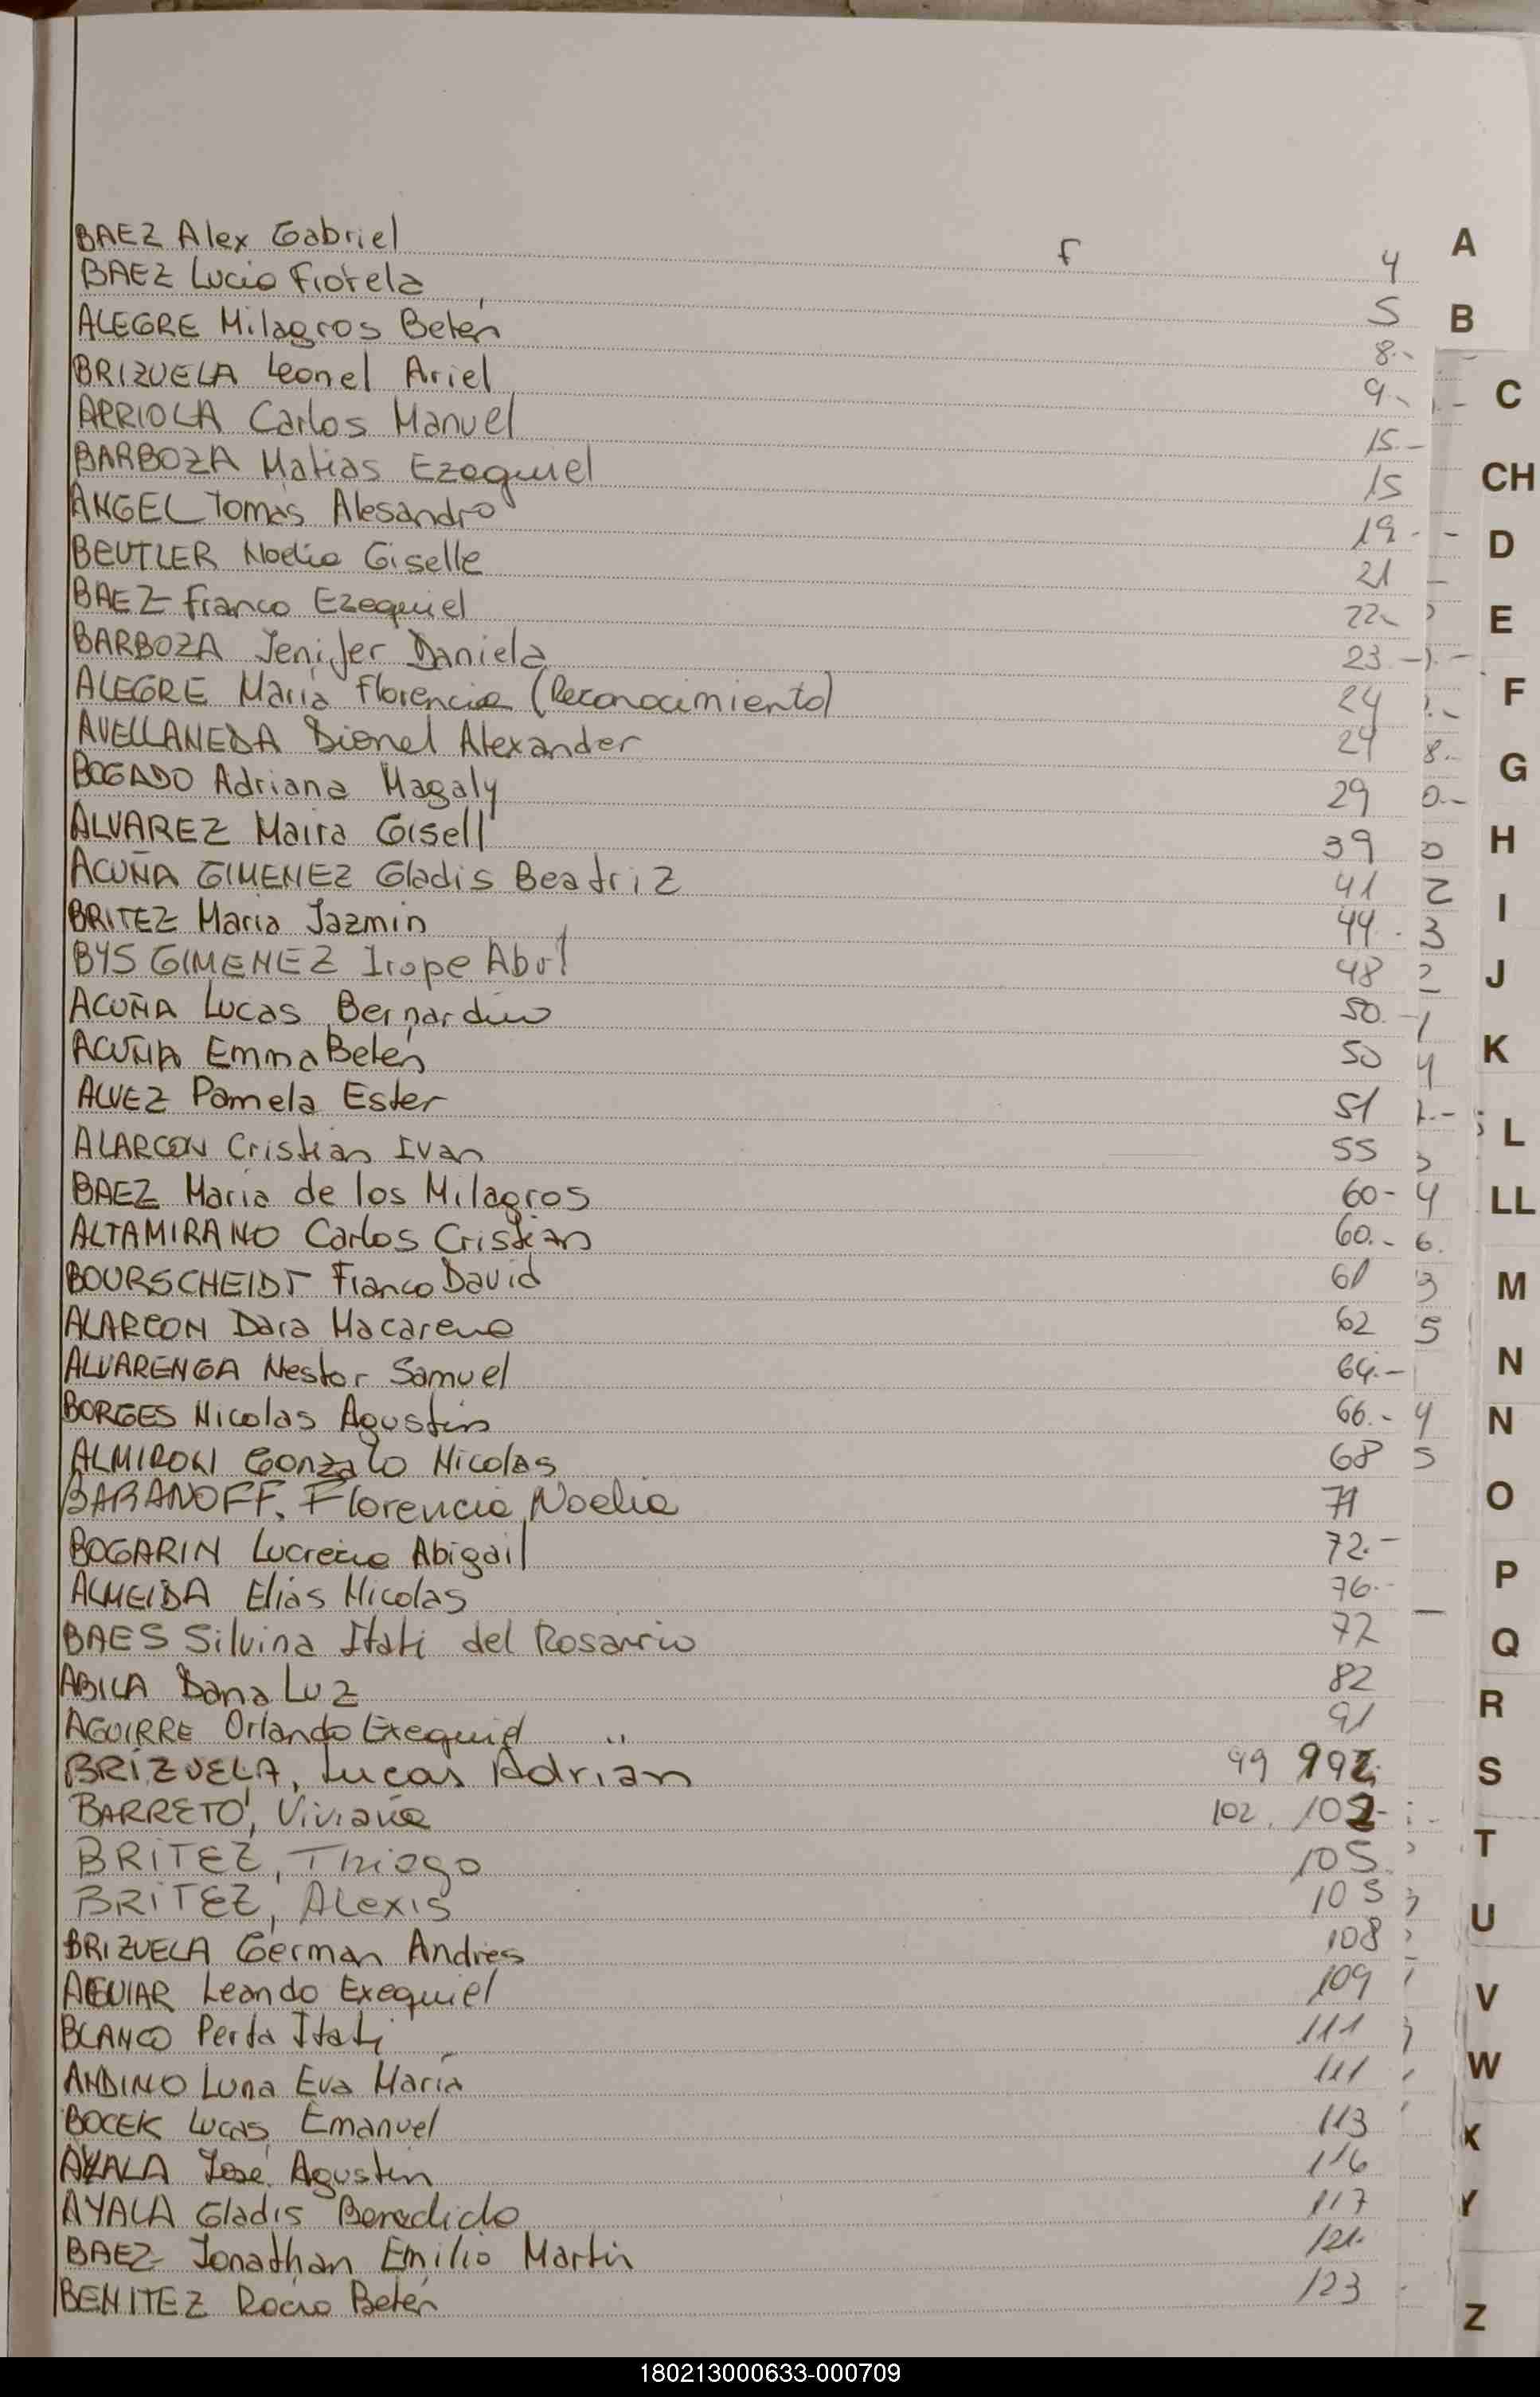 BAEZ Alex Gabriel F 4
BAEZ Lucio Fiorela 5
ALEGRE Milagros Belén 8.-
BRIZUELA Leonel Ariel 9.-
ARRIOLA Carlos Manuel 15.-
BARBOZA Matias Ezequiel 15
ANGEL Tomás Alesandro 19.-
BEUTLER Noelia Giselle 21
BAEZ Franco Ezequiel 22.-
BARBOZA Jenifer Daniela 23.-
ALEGRE María Florencia (Reconocimiento) 24
AVELLANEDA Dionel Alexander 24
BOGADO Adriana Magaly 29
ALVAREZ Maira Gisell 39
ACUÑA GIMENEZ Gladis Beatriz 41
BRITEZ Maria Jazmin 44.
BYS GIMENEZ 48
ACUÑA Lucas Bernardino 50.-
ACUÑA Emma Belén 50
ALVEZ Pamela Ester 51
ALARCON Cristian Ivan 55
BAEZ Maria de los Milagros 60-
ALTAMIRANO Carlos Cristian 60.-
BOURSCHEIDT Franco David 61
ALARCON Dara Macarena 62
ALVARENGA Nestor Samuel 64.-
BORGES Nicolas Agustin 66.-
ALMIRON Gonzalo Nicolas 68
BARANOFF, Florencia Noelia 71
BOGARIN Lucrecia Abigail 72.-
ALMEIDA Elias Nicolas 76.-
BAES Silvina Itati del Rosario 77
ABILA Dana Luz 82
AGUIRRE Orlando Exequiel 91
BRIZUELA, Lucas Adrián 99
BARRETO, Viviana 102. 102-
BRITEZ, Thiago 105.
BRITEZ, Alexis 105
BRIZUELA German Andrés 108
AGUIAR Leando Exequiel 109
BLANCO Perla Itati 111
ANDINO Luna Eva María 111
BOCEK Lucas Emanuel 113
AYALA José Agustin 116
AYALA Gladis 117
BAEZ Jonathan Emilio Martin 121.
BENITEZ Rocio Belén 123
A
B
C
CH
D
E
F
G
H
I
J
K
L
LL
M
N
N
O
P
Q
R
S
T
U
V
W
X
Y
Z
180213000633-000709